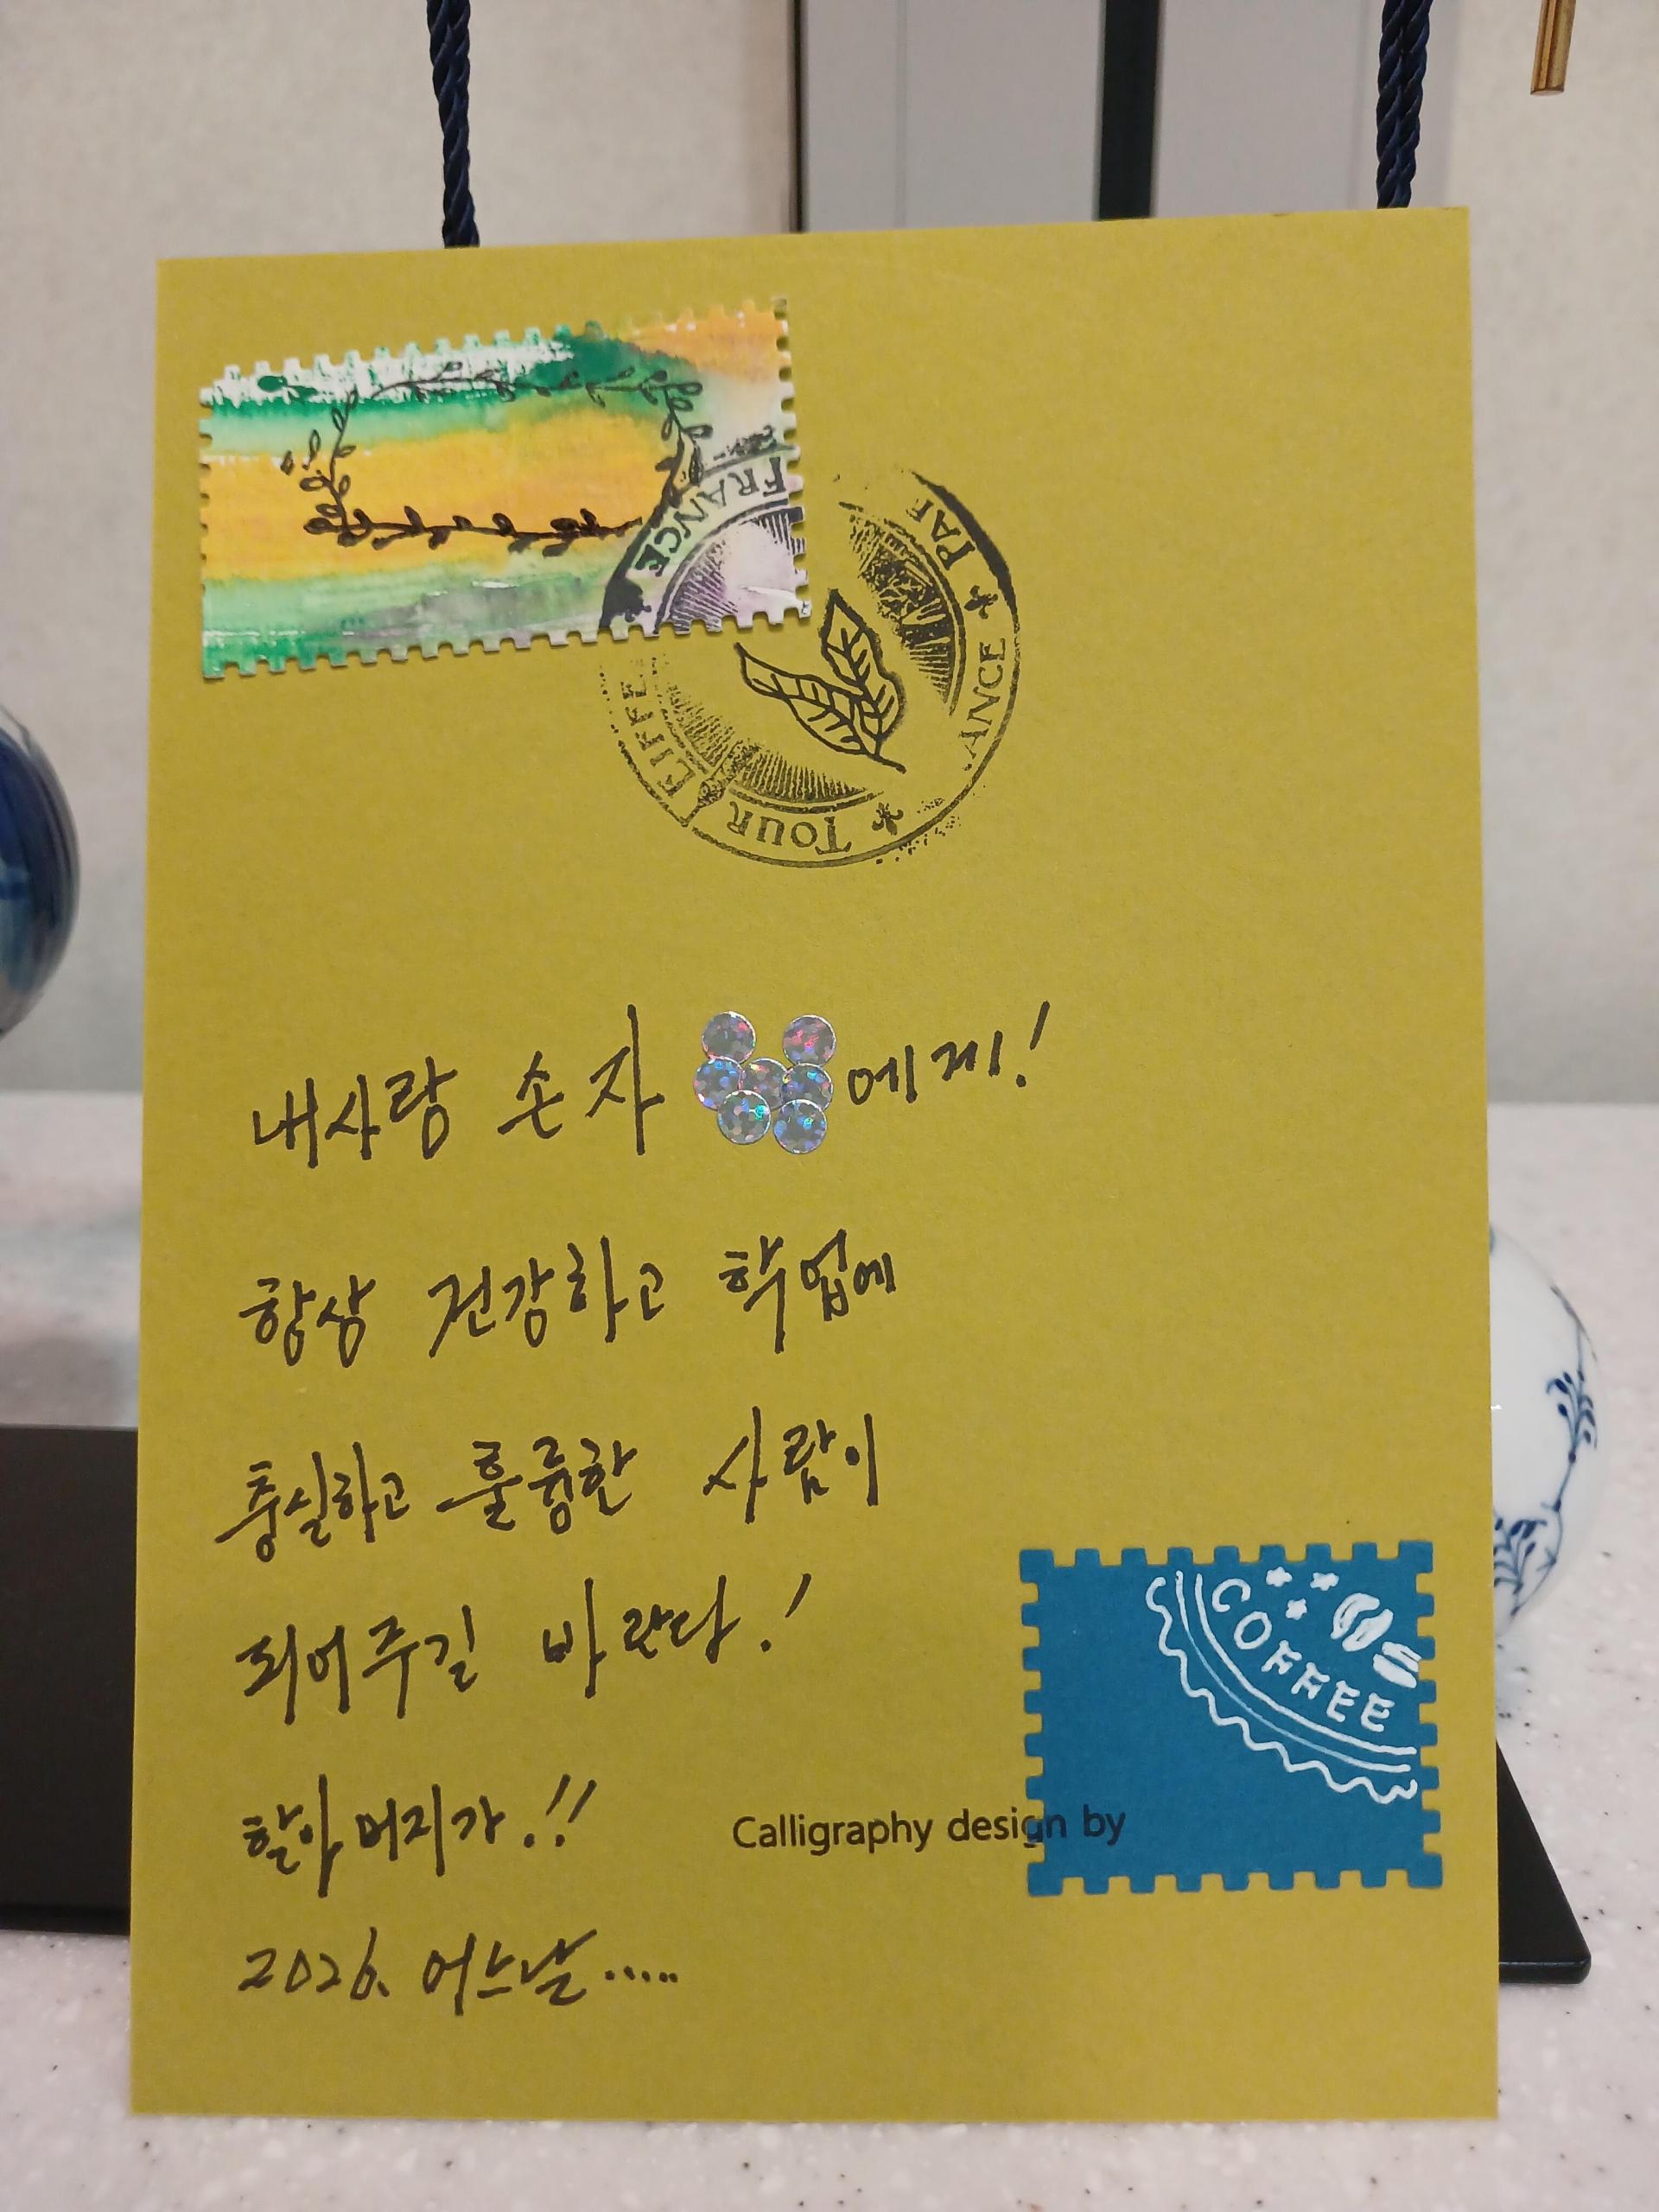 FRANCE
PAR
ANCE
TOUR EIFFE
내사랑 손자 에게!
항상 건강하고 학업에
충실하고 훌륭한 사람이
되어주길 바란다!
할아버지가!!
COFFEE
Calligraphy design by
2026. 어느날.....